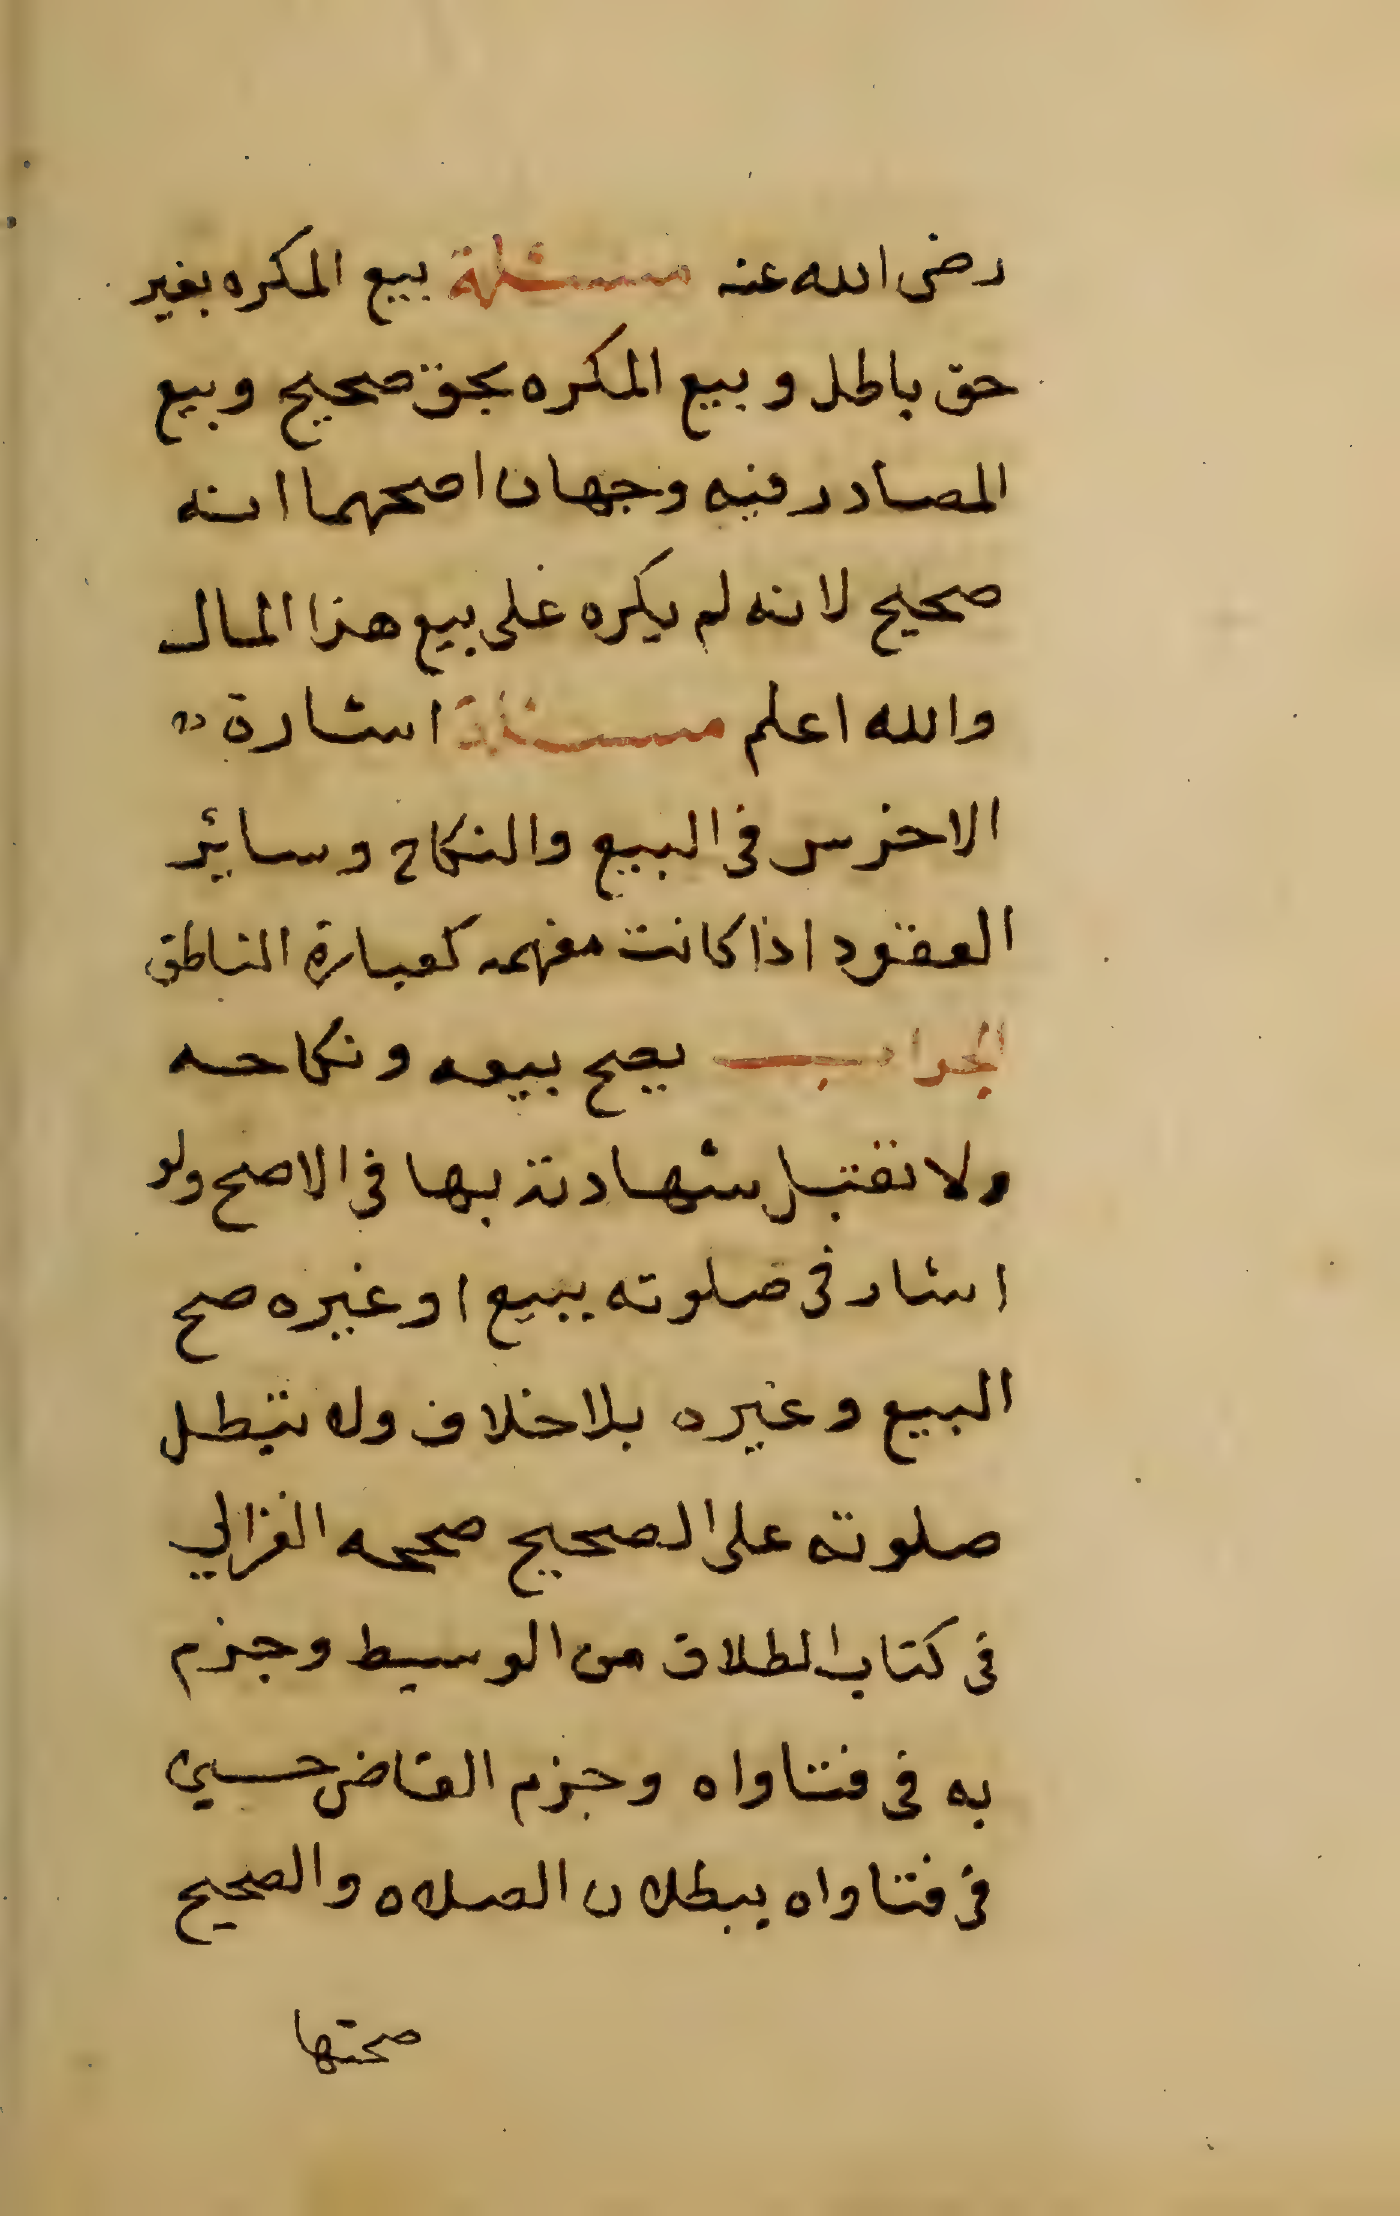 رضى الله عنه مسئلة بيع المكره بغير
حق باطل وبيع المكره بحق صحيح وبيع
المصادر فيه وجهان اصحهما انه
صحيح لانه لم يكره على بيع هذا المال
والله اعلم مسئلة اشارة
الاخرس فى البيع والنكاح وسائر
العقود اذا كانت مفهمه كعبارة الناطق
الجواب يصح بيعه ونكاحه
ولا تقبل شهادته بها فى الاصح ولو
اشار فى صلوته ببيع او غيره صح
البيع وغيره بلا خلاف ولا تبطل
صلوته على الصحيح صححه الغزالي
فى كتاب الطلاق من الوسيط وجزم
به فى فتاواه وجزم القاضى حسين
فى فتاواه ببطلان الصلاه والصحيح
صحتها